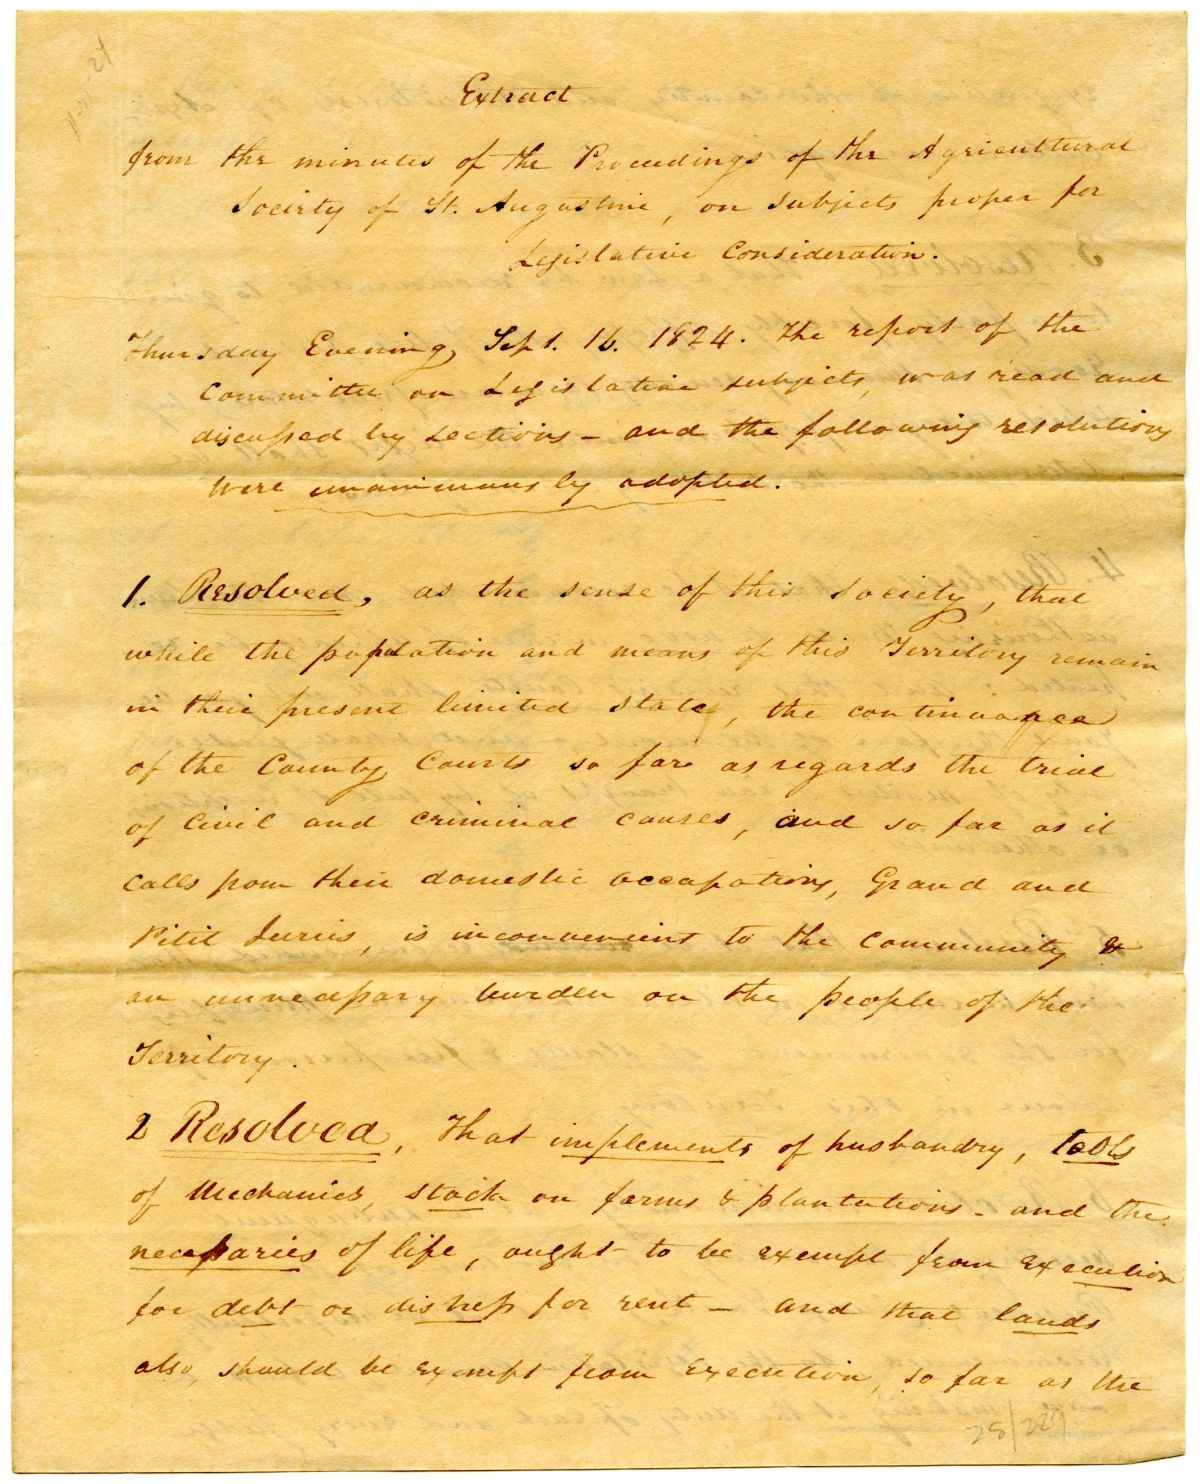 Extract
from the minutes of the Proceedings of the Agricultural
Society of St. Augustine, on subjects proper for
Legislative Consideration.
Thursday Evening, Sept. 16. 1824. The report of the
Committee on Legislative subjects, was read and
discussed by sections - and the following resolutions
were unanimously adopted.
1. Resolved, as the sense of this Society, that
while the population and means of this Territory remain
in their present limited state, the continuance
of the County Courts so far as regards the trial
of Civil and criminal causes, and so far as it
calls from their domestic occupations, Grand and
Pitit Juries, is inconvenient to the community &
an unnecessary burden on the people of the
Territory.
2 Resolved, That implements of husbandry, tools
of Mechanics, stock on farms & plantations - and the
necessaries of life, ought to be exempt from execution
for debt or distress for rent - and that lands
also, should be exempt from execution, so far as the
28/227